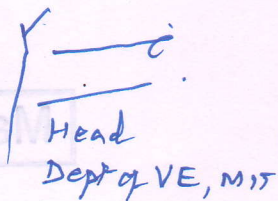 Head
Dept of VE, MIT